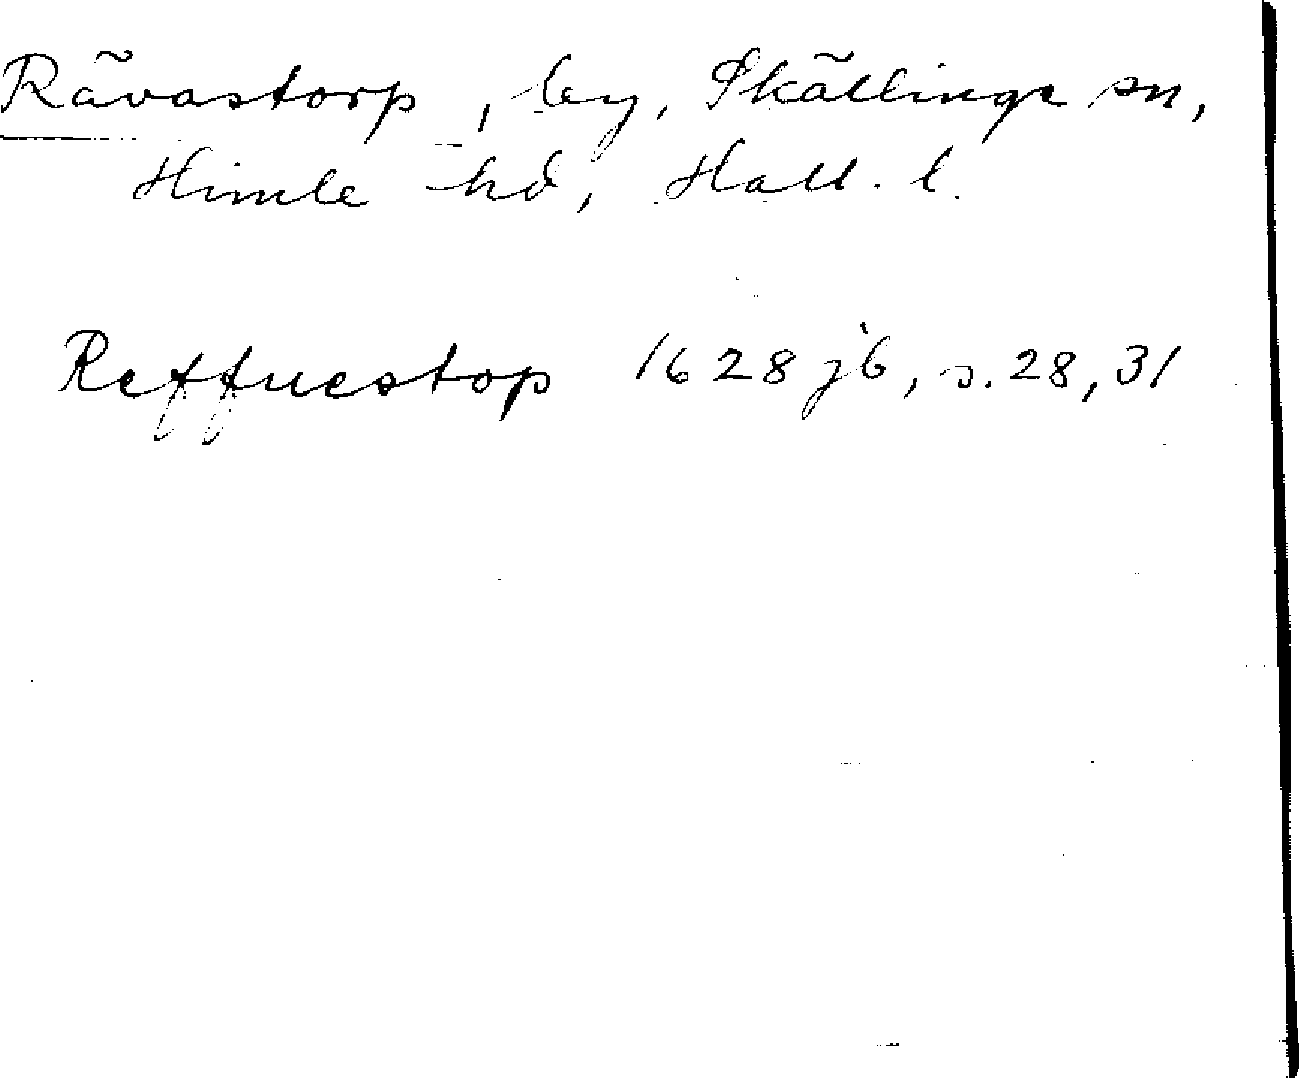 Rävastorp, by, Skällinge sn,
Himle hd, Hall. l.
Reffuestop 1628 jb, s. 28, 31